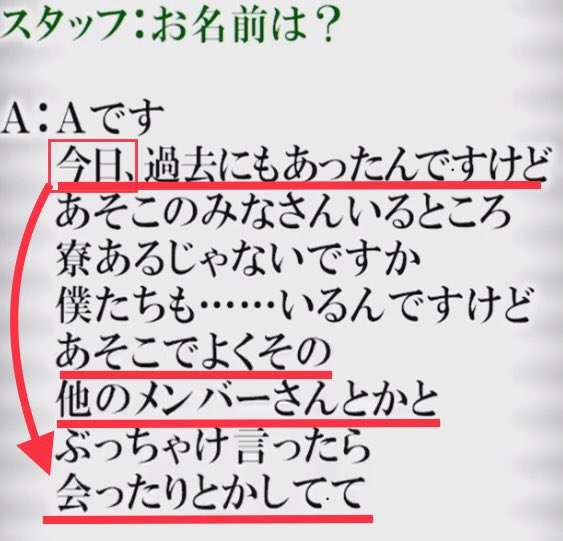 スタッフ：お名前は？
A：Aです
今日、過去にもあったんですけど
あそこのみなさんいるところ
寮あるじゃないですか
僕たちも……いるんですけど
あそこでよくその
他のメンバーさんとかと
ぶっちゃけ言ったら
会ったりとかしてて